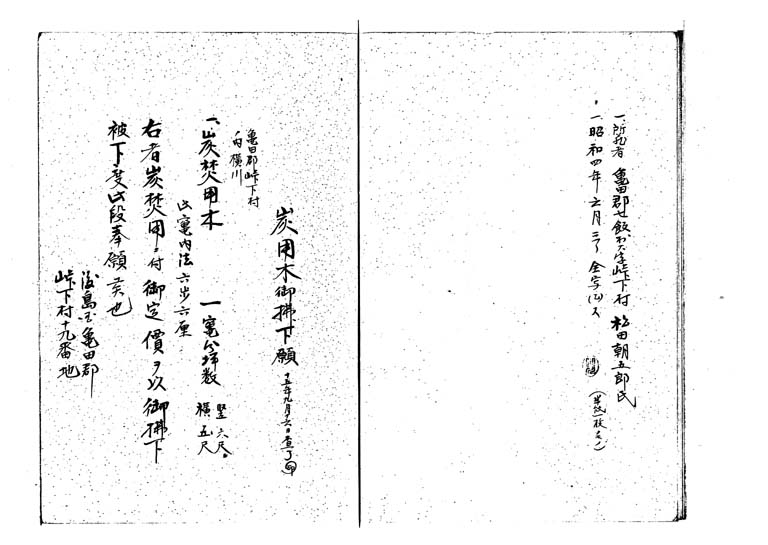 一、所蔵者 亀田郡七飯村大字峠下村 松田朝五郎氏
一、昭和四年六月二了 全写(了)ス
(半紙一枚モノ)
炭用木御拂下願
十五年九月十六日查了
亀田郡峠下村
字横川
一、炭焚用木 一竃分坪数 竪六尺 横五尺
此竃内法六步六厘
右者炭焚用ニ付御定價ヲ以御拂下
被下度此段奉願候也
渡島国亀田郡
峠下村十九番地